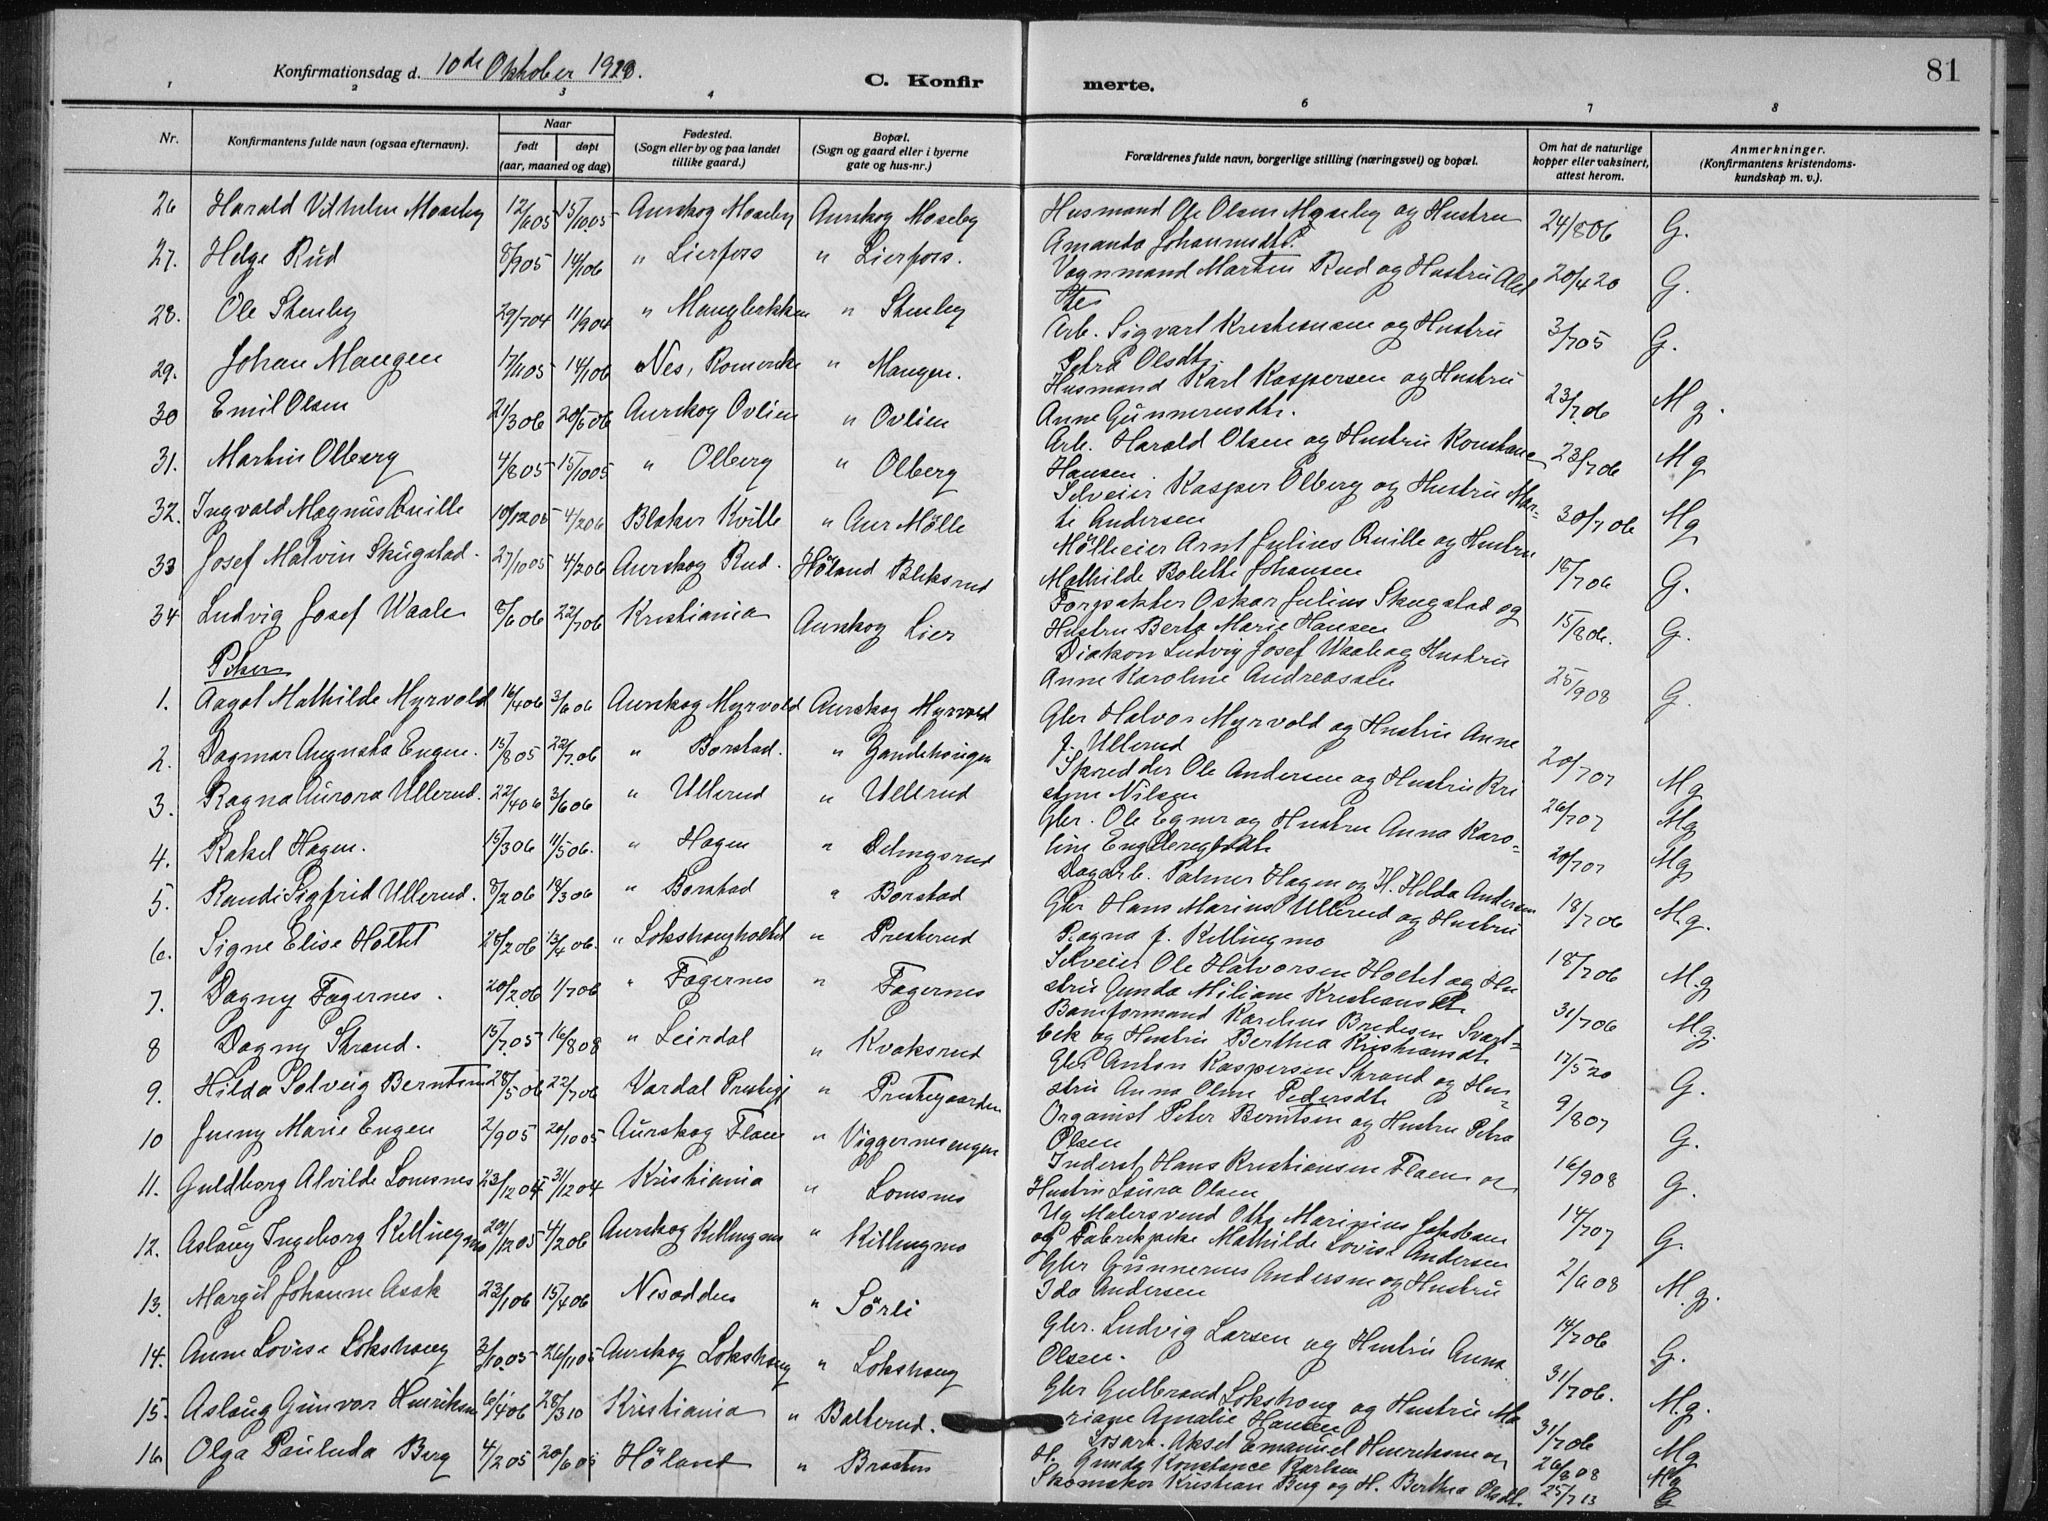 81
Konfirmationsdag d. 10de Oktober 1920.
C. Konfirmerte.
1 2 3 4 6 7 8
Nr. Konfirmantens fulde navn (ogsaa efternavn). Naar født døpt (aar, maaned og dag) Fødested. (Sogn eller by og paa landet tillike gaard.) Bopæl. (Sogn og gaard eller i byerne gate og hus-nr.) Forældrenes fulde navn, borgerlige stilling (næringsvei) og bopæl. Om hat de naturlige kopper eller vaksinert, attest herom. Anmerkninger. (Konfirmantens kristendoms-kundskap m. v.).
26 Harald Vilhelm Moseby 12/6 05 15/10 05 Aurskog Moseby Aurskog Moseby Husmand Ole Olsen Moseby og Hustru Amanda Johannesdt. 24/8 06 G.
27. Helge Rud 8/9 05 14/1 06 " Lierfoss " Lierfoss. Vognmand Martin Rud og Hustru 20/4 20 G.
28. Ole Stenby 29/7 04 11/9 04 " " Stenby Arb. Sigvart Kristiansen og Hustru Petra Olsdt. 3/7 05 G.
29. Johan Mangen 17/11 05 14/1 06 Nes, Romerike " Mangen. Husmand Karl Kaspersen og Hustru Anne Gunnerusdt. 23/7 06 Mg.
30 Emil Olsen 21/3 06 20/5 06 Aurskog Ovlien " Ovlien Arb. Harald Olsen og Hustru Konstanse Hansen 23/7 06 Mg
31. Martin Olberg 4/8 05 15/10 05 " Olberg " Olberg Selveier Kasper Olberg og Hustru Marti Andersen 30/7 06 Mg
32. Ingvald Magnus Quille 10/12 05 4/2 06 Blaker Kville " Aur Mölle Mölleier Arnt Julius Quille og Hustru Mathilde Bolette Johansen 18/7 06 G.
33 Josef Malvin Skugstad. 27/10 05 4/2 06 Aurskog Rud. Höland Bliksrud Forpakter Oskar Julius Skugstad og Hustru Berta Marie Hansen 15/8 06. G.
34 Ludvig Josef Waale 8/6 06 22/7 06 Kristiania Aurskog Lier Diakon Ludvig Josef Waale og Hustru Anne Karoline Andreassen 25/9 08 G.
Piker
1. Aagot Mathilde Myrvold 16/4 06 3/6 06 Aurskog Myrvold Aurskog Myrvold Gbr Halvor Myrvold og Hustru Anne f. Ullerud 20/7 07 Mg
2. Dagmar Augusta Engen. 15/8 05 22/7 06 " Borstad. " Skredder Ole Andersen og Hustru Kristine Nilsen 26/7 07 Mg
3. Ragna Aurora Ullerud. 22/4 06 3/6 06 " Ullerud " Ullerud Gbr. Ole Egner og Hustru Anna Karoline Engebregtsdt. 20/7 07 Mg
4. Rakel Hagen. 15/3 06 11/5 06. " Hagen " Delingsrud Dagarb. Palmer Hagen og H. Hilda Andersen 18/7 06 M.g.
5. Randi Sigfrid Ullerud. 8/2 06 18/3 06 " Borstad " Borstad Gbr Hans Marius Ullerud og Hustru Ragna f. Killingmo 18/7 06 M.g
6. Signe Elise Holtet 28/2 06 13/4 06. " Lokshaugholtet " Presterud Selveier Ole Halvorsen Holtet og Hustru Gunda Miliane Kristiansdt. 31/7 06 Mg.
7. Dagny Fagernes. 20/2 06 1/7 06 " Fagernes " Fagernes Banformand Karelius Bredesen Svartbek og Hustru Berthea Kristiansdt. 17/5 20 G.
8 Dagny Strand. 15/7 05 16/8 08 " Leirdal " Kvaksrud Gbr Anton Kaspersen Strand og Hustru Anna Oline Pedersdt. 9/8 07 G.
9. Hilda Solveig Berntsen 28/5 06 22/7 06 Vardal Prestegj " Prestegaarden Organist Peter Berntsen og Hustru Petra Olsen 16/9 08 G.
10 Jenny Marie Engen 2/9 05 20/10 05 Aurskog Floen " Viggernesengen Inderst Hans Kristiansen Floen og Hustru Laura Olsen 14/7 07 G.
11. Guldborg Alvilde Lomsnes 23/12 04 31/12 04 Kristiania " Lomsnes Ug Malersvend Otto Marinius Jakobsen og Fabrikpike Mathilde Lovise Andersen 2/9 08 M.g.
12. Aslaug Ingeborg Killingmo 20/12 05 4/2 06 Aurskog Killingmo " Killingmo Gbr Gunnerius Andersen og Hustru Ida Andersen 14/7 06 G.
13. Margit Johanne Asak 23/1 06 15/4 06 Nesodden " Sörli Gbr. Ludvig Larsen og Hustru Anna Olsen. 31/7 06. M.g.
14. Anne Lovise Lokshaug 3/10 05 26/11 05 Aurskog Lokshaug " Lokshaug Gbr Gulbrand Lokshaug og Hustru Mariane Amalie Hansen 31/7 06 Mg
15. Aslaug Gunvor Henriksen 6/4 06 28/3 10 Kristiania " Balterud. Losarb. Aksel Emanuel Henriksen og H. Gunda Konstance Karlsen 26/8 08 Mg
16 Olga Paulida Berg 4/2 05 20/6 05 Höland " Braaten Skomaker Kristian Berg og H. Berthea Olsdt. 25/7 13 G